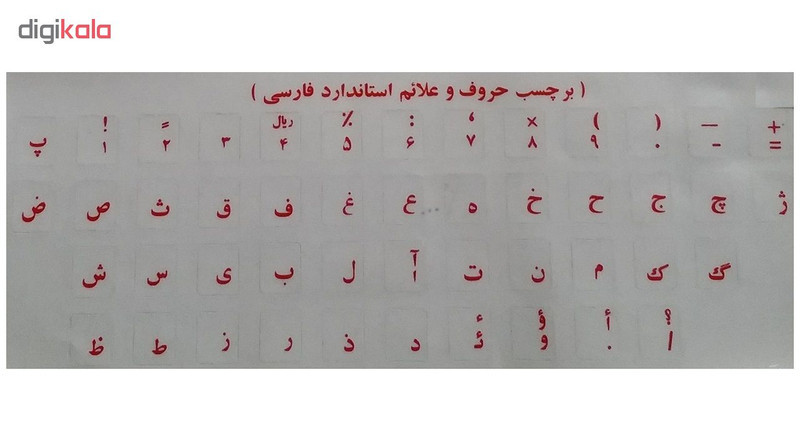 digikala
( برچسب حروف و علائم استاندارد فارسی )
! = ریال ٪ : ، × ( ) — +
پ ۱ ۲ ۳ ۴ ۵ ۶ ۷ ۸ ۹ ۰ - =
ض ص ث ق ف غ ع ه خ ح ج چ ژ
آ
ش س ی ب ل ا ت ن م ک گ
ء ؤ أ ؟
ظ ط ز ر ذ د ئ و . /